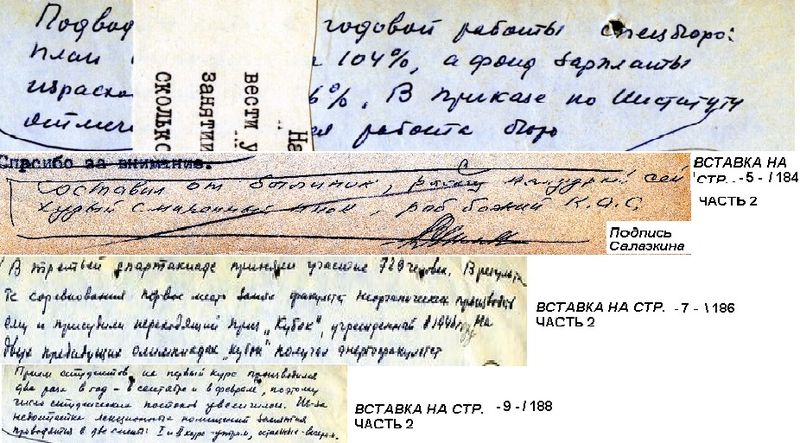 Подвод годовой работы спецбюро:
план 104%, а фонд зарплаты
израско 6%. В приказе по Институту
отмече ся работа бюро
На
вести у
занятии
сколько
Спасибо за внимание.
ВСТАВКА НА
СТР. -5-/184
ЧАСТЬ 2
Составил от
худый смиренный инок, раб божий К.А.С.
Подпись
Салазкина
В третьей спартакиаде приняли участие человек. В результа
те соревнования первое место занял факультет неорганических производств
ему и присудили переходящий приз "Кубок", учрежденный в 1948 году. На
двух предыдущих олимпиадах "кубок" получал энергофакультет
ВСТАВКА НА СТР. -7-/186
ЧАСТЬ 2
Прием студентов на первый курс производился
два раза в год - в сентябре и в феврале, поэтому
число студенческих потоков увеличилось. Из-за
недостатка лекционных помещений занятия
проводятся в две смены: I и II курс утром, остальные вечером.
ВСТАВКА НА СТР. -9-/188
ЧАСТЬ 2